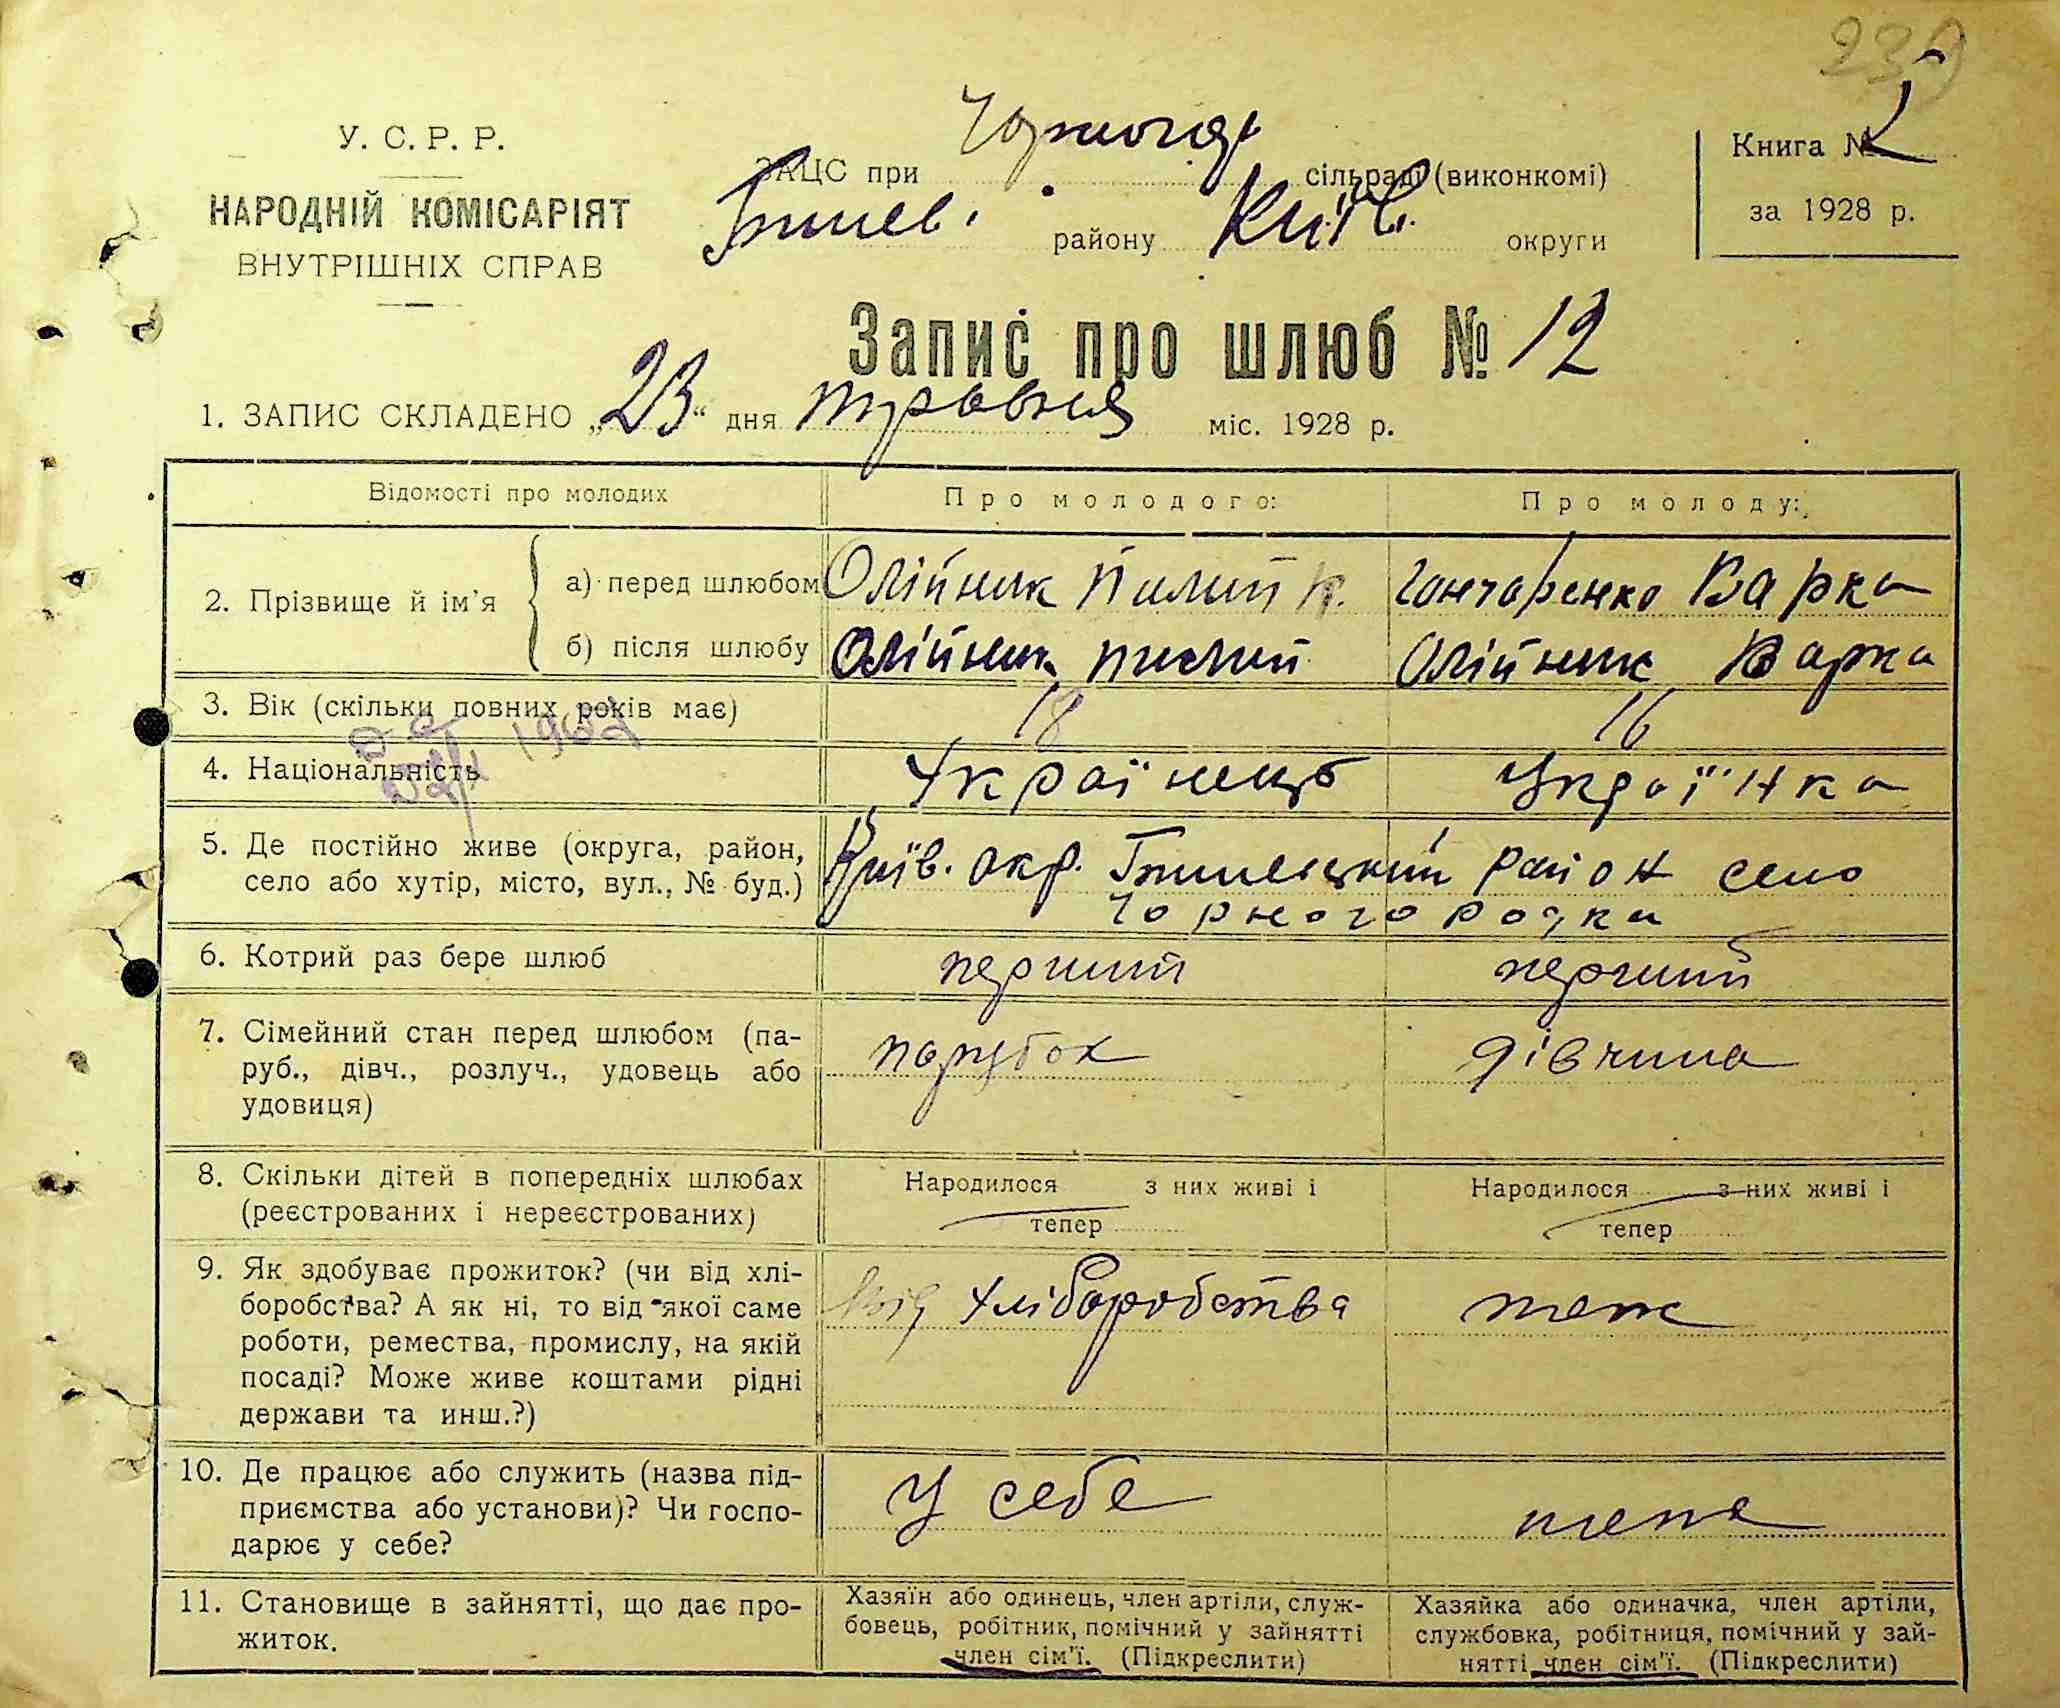 239
У. С. Р. Р.
НАРОДНІЙ КОМІСАРІЯТ
ВНУТРІШНІХ СПРАВ
ЗАЦС при Чорногор сільраді (виконкомі)
району Київ. округи
Книга №
за 1928 р.
Запис про шлюб № 12
1. ЗАПИС СКЛАДЕНО „23“ дня травня міс. 1928 р.
Відомості про молодих
Про молодого:
Про молоду:
2. Прізвище й ім'я
а) перед шлюбом Олійник Пилип К. Гончаренко Варка
б) після шлюбу Олійник Пилип Олійник Варка
3. Вік (скільки повних років має) 18 16
4. Національність Українець Українка
5. Де постійно живе (округа, район, село або хутір, місто, вул., № буд.)
Київ. окр. район село
Чорногородка
6. Котрий раз бере шлюб перший перший
7. Сімейний стан перед шлюбом (па-
руб., дівч., розлуч., удовець або
удовиця)
парубок дівчина
8. Скільки дітей в попередніх шлюбах
(реєстрованих і нереєстрованих)
Народилося з них живі і
тепер
Народилося з них живі і
тепер
9. Як здобуває прожиток? (чи від хлі-
боробства? А як ні, то від якої саме
роботи, ремества, промислу, на якій
посаді? Може живе коштами рідні
держави та инш.?)
Від хліборобства теж
10. Де працює або служить (назва під-
приємства або установи)? Чи госпо-
дарює у себе?
у себе теж
11. Становище в зайнятті, що дає про-
житок.
Хазяїн або одинець, член артіли, служ-
бовець, робітник, помічний у зайнятті
член сім'ї. (Підкреслити)
Хазяйка або одиначка, член артіли,
службовка, робітниця, помічний у зай-
нятті член сім'ї. (Підкреслити)